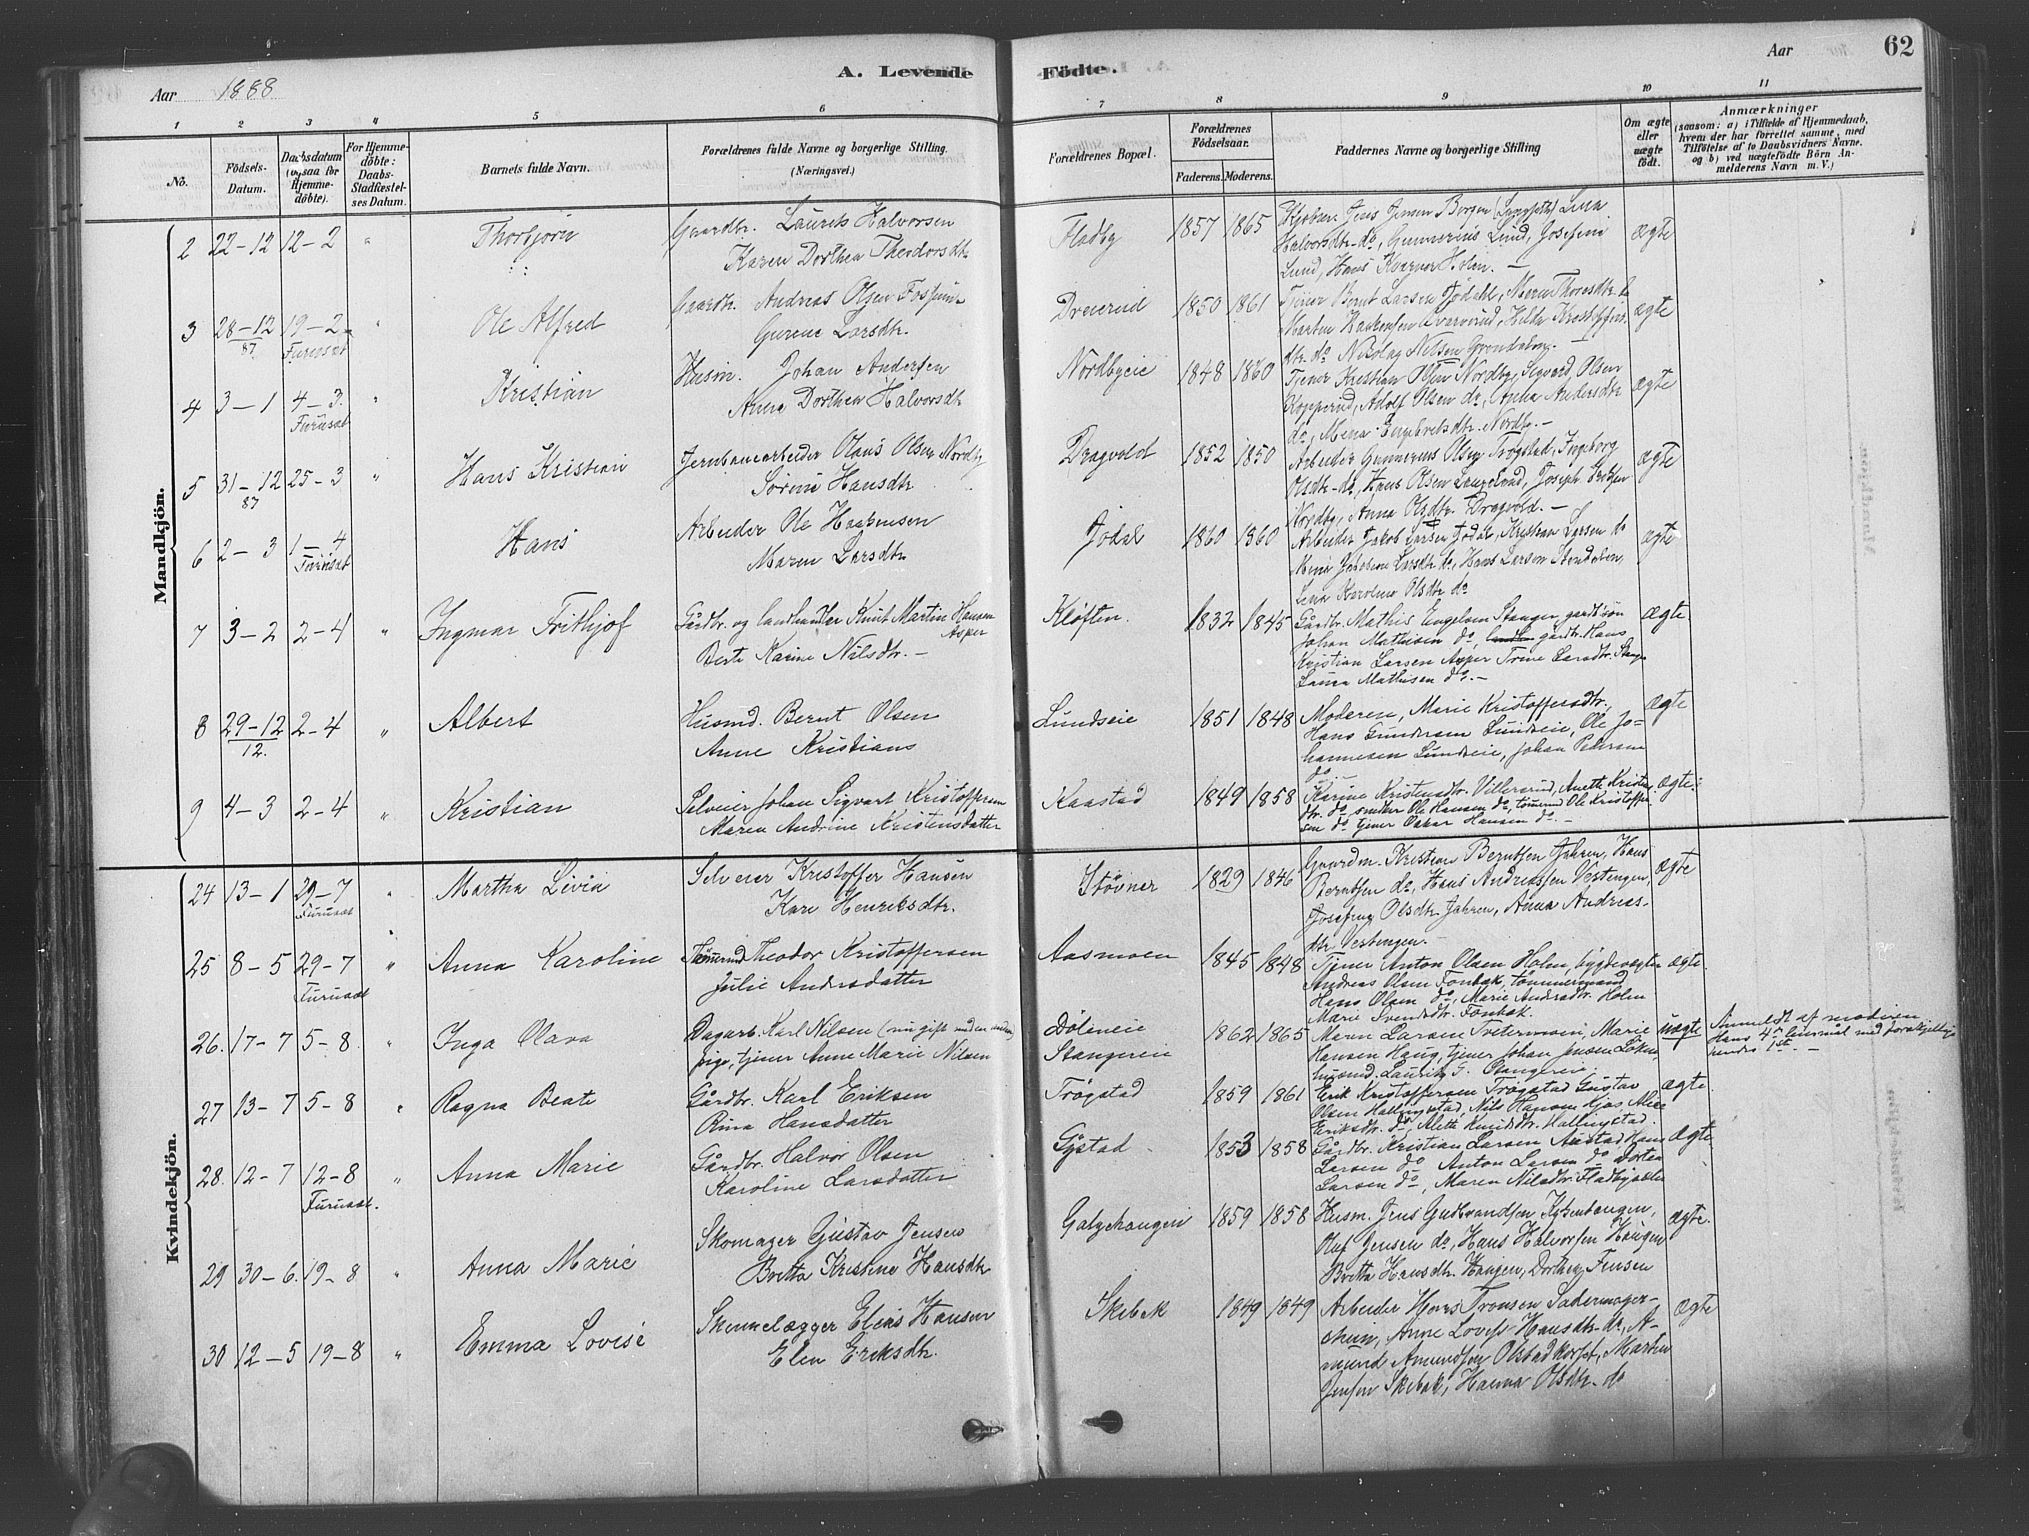 Aar 1888
A. Levende Fødte.
Aar 62
1 2 3 4 5 6 7 8 9 10 11
No.
Fødsels-
Datum.
Daabsdatum
(ogsaa for
Hjemme-
døbte).
For Hjemme-
døbte:
Daabs-
Stadfæstel-
ses Datum.
Barnets fulde Navn.
Forældrenes fulde Navne og borgerlige Stilling.
(Næringsvei.)
Forældrenes Bopæl.
Forældrenes
Fødselsaar.
Faderens. Moderens.
Faddernes Navne og borgerlige Stilling
Om ægte
eller
uægte
født.
Anmærkninger
(saasom: a) i Tilfælde af Hjemmedaab,
hvem der har forrettet samme, med
Tilføielse af to Daabsvidners Navne.
og b) ved uægtefødte Børn An-
melderens Navn m. V.)
Mandkjön.
2 22-12 12-2 " Thorbjørn
Gaardbr. Laurits Halvorsen
Karen Dorthea Theodorsdtr.
Fladby 1857 1865
Jens Jensen Borgen (Langseth) Lina
Halvorsdtr. do, Gunnerius Lund, Josefine
Lund, Hans Kværner Holm. —
ægte
3 28-12 87 19-2 Furuset " Ole Alfred
Gaardbr. Andreas Olsen Fossum
Gurine Larsdtr.
Dreierud 1850 1861
Tjener Bernt Larsen Jødahl, Maren Thoresdtr. do
Martin Haakensen Kværnerud, Hilda Kristoffers-
dtr. do Nikolay Nilsen Grøndalen. —
ægte
4 3-1 4-3. Furuset " Kristian
Husm. Johan Andersen
Anna Dorthea Halvorsdtr
Nordbyeie 1848 1860
Tjener Kristian Olsen Nordby, Sigvard Olsen
Kopperud, Adolf Olsen do, Anna Andersdtr
do, Mina Engebretsdtr. Nordby. —
ægte
5 31-12 87 25-3 " Hans Kristian
Jernbanearbeider Olaus Olsen Nordby
Sørine Hansdtr
Dragvold 1852 1850
Arbeider Gunnerius Olsen Trøgstad, Ingeborg
Olsdtr. do, Hans Olsen Langelud, Joseph
Nordby, Anna Olsdtr. Dragvold. —
ægte
6 2-3 1-4 Furuset Hans
Arbeider Ole Haakensen
Maren Larsdtr
Jødal 1860 1860
Arbeider Jakob Larsen Jødal, Kristian Larsen do
Mina Josefine Larsdtr. do, Hans Larsen
Lena Karoline Olsdtr do
ægte
7 3-2 2-4 " Ingmar Frithjof
Gårdbr. og landhandler Knut Martin Hansen
Asper
Berte Karine Nilsdtr. —
Kløften. 1832 1845
Gårdbr. Mathis Engelsen Stanger, gårdbrsøn
Johan Mathisen do, gårdbr. Hans
Kristian Larsen Asper Trine Larsdtr. Stange
Laura Mathisen do. —
Ægte
8 29-12 12. 2-4 " Albert
Husmd. Bernt Olsen
Anne Kristians
Lundseie 1851 1848
Moderen, Marie Kristoffersdtr,
Hans Gundersen Lundseie, Ole Jo-
hannesen Lundseie, Johan Pedersen
do
ægte
9 4-3 2-4 " Kristian
Selveier Johan Sigvart Kristoffersen
Maren Andrine Kristensdatter
Kaastad 1849 1858
Karine Kristensdtr. Villerud, Anette Kristens-
dtr. do snedker Ole Hansen do, tømmrmd Ole Kristoffer-
sen do, tjener Oskar Hansen do. —
ægte.
Kvindekjön.
24 13-1 29-7 Furuset " Martha Livia
Selveier Kristoffer Hansen
Kari Henriksdtr.
Støvner 1829 1846
Gaardm. Kristian Berntsen Jahren, Hans
Berntsen do, Hans Andreassen Vestengen,
Josefine Olsdtr. Jahren, Anna Andreas-
dtr. Vestengen. —
ægte
25 8-5 29-7 Furuset " Anna Karoline
Tømmermd Theodor Kristoffersen
Julie Andersdatter
Aasmoen 1845 1848
Tjener Anton Olsen Holm, bygdevægter
Andreas Olsen Fonbæk, tømmermand
Hans Olsen do, Marie Andersdtr. Holm
Marie Svendsdtr. Fonbæk.
ægte.
26. 17-7 5-8. " Inga Olava
Dagarb. Karl Nilsen (nu gift med en anden)
pige, tjener Anne Marie Nilsen
Døleneie
Stangereie 1862 1865
Maren Larsen Tvetermoen, Marie
Hansen Haug, tjener Johan Jensen Løken
husmd. Laurits G. Stangereie.
uægte
Anmeldt af moderen
Hans 4de leiermål med forskjellige
hendes 1ste. —
27 13-7 5-8 " Ragna Beate
Gårdbr. Karl Eriksen
Rina Hansdatter
Trøgstad 1859 1861
Erik Kristoffersen Trøgstad Gustav
Olsen Hallingstad, Nils Hansen Kjos Mine
Eriksdtr. do, Alette Knudsdtr. Hallingstad.
ægte
28. 12-7 12-8 Furuset. " Anna Marie
Gårdbr. Halvor Olsen
Karoline Larsdatter
Gystad 1853 1858
Gårdbr. Kristian Larsen Austad Hans
Larsen do Anton Larsen do Dortea
Larsen do, Maren Nilsdtr. Fladbysæter
Ægte
29 30-6. 19-8 " Anna Marie
Skomager Gustav Jensen
Britta Kristine Hansdtr
Galgehaugen 1859 1858
Husm. Jens Gudbrandsen
Oluf Jensen do, Hans Halvorsen Haugen
Britta Hansdtr. Haugen, Dorthea Jensen
ægte.
30 12-5 19-8 " Emma Lovise
Skinnelægger Elias Hansen
Elen Eriksdtr.
Skibak 1849 1849
Arbeider Hans Tronsen Sadermager-
Anne Lovise Hansdtr. do, A-
mund Amundsen Olstadkorset, Martin
Jensen Skibak, Hanna Olsdtr. do
Ægte